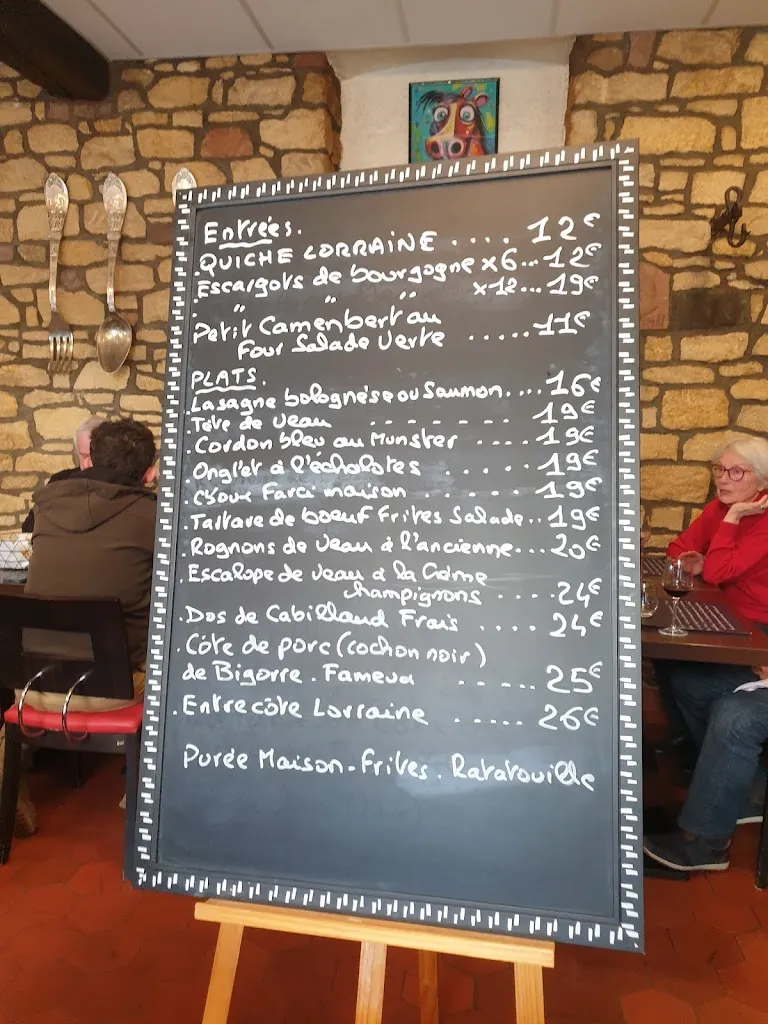 Entrées.
QUICHE LORRAINE .... 12€
Escargots de bourgogne x6...12€
" " x12...19€
Petit Camenbert au
Four Salade Verte .....11€
PLATS.
.Lasagne bolognèse ou Saumon....16€
.Tête de Veau - - - - - - - 19€
.Cordon bleu au Munster ....19€
.Onglet à l'échalotes .....19€
.Choux Farci maison ......19€
.Tartare de boeuf Frites Salade..19€
.Rognons de Veau à l'ancienne...20€
.Escalope de Veau à la Crème
champignons .....24€
.Dos de Cabillaud Frais ....24€
.Côte de porc (cochon noir)
de Bigorre. Fameux - - - - ..25€
.Entrecôte Lorraine .....26€
Purée Maison-Frites. Ratatouille